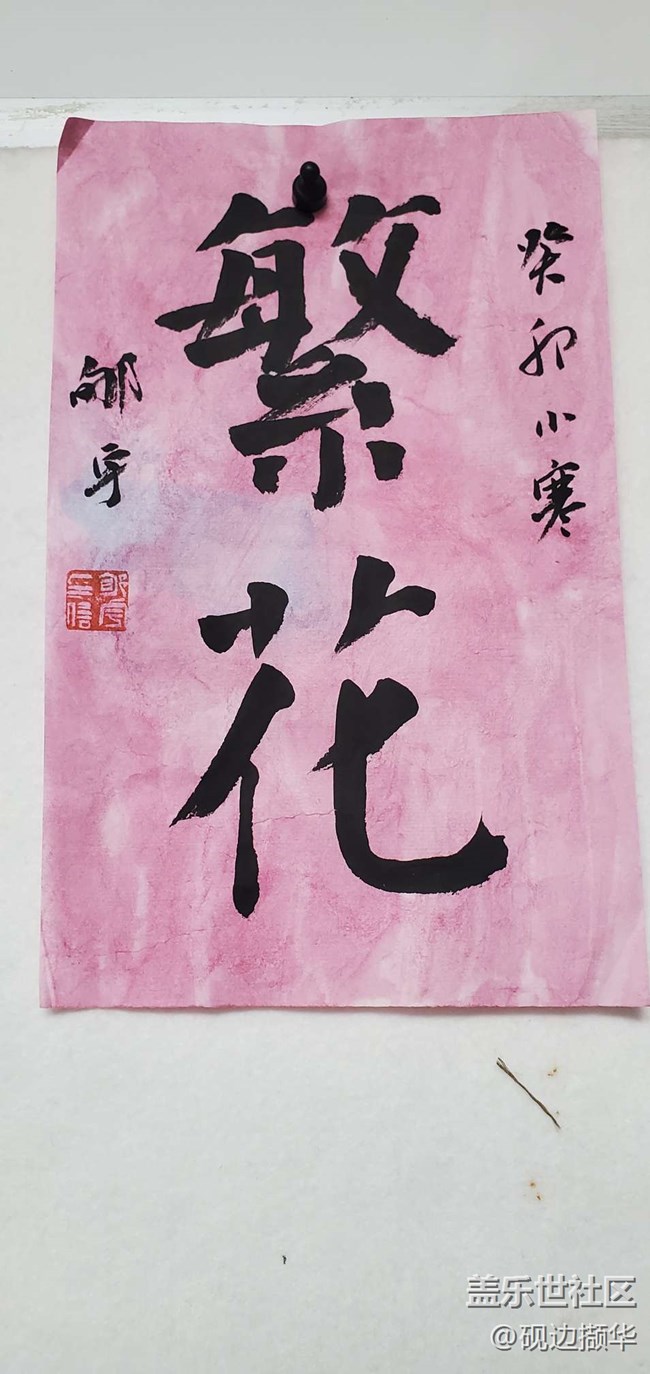 癸卯小寒
繁花
邹宇
盖乐世社区
@砚边撷华